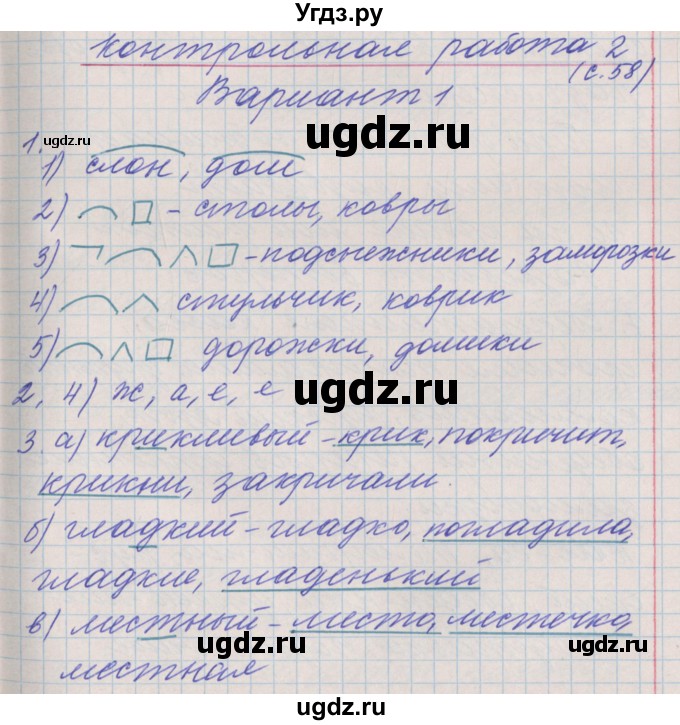 Угдз.ру
Контрольная работа 2
(с. 58)
Вариант 1
ugdz.ru
1.
1) слон, дом
2) - столы, ковры
3) - подснежники, заморозки
ugdz.ru
4) стульчик, коврик
5) дорожки, домики
ugdz.ru
2. 4) ж, а, е, е
3. а) крикливый - крик, покричит,
крикни, закричали.
ugdz.ru
б) гладкий - гладко, погладила,
гладкие, гладенький
в) местный - место, местечко
ugdz.ru ugdz.ru
местная
ugdz.ru